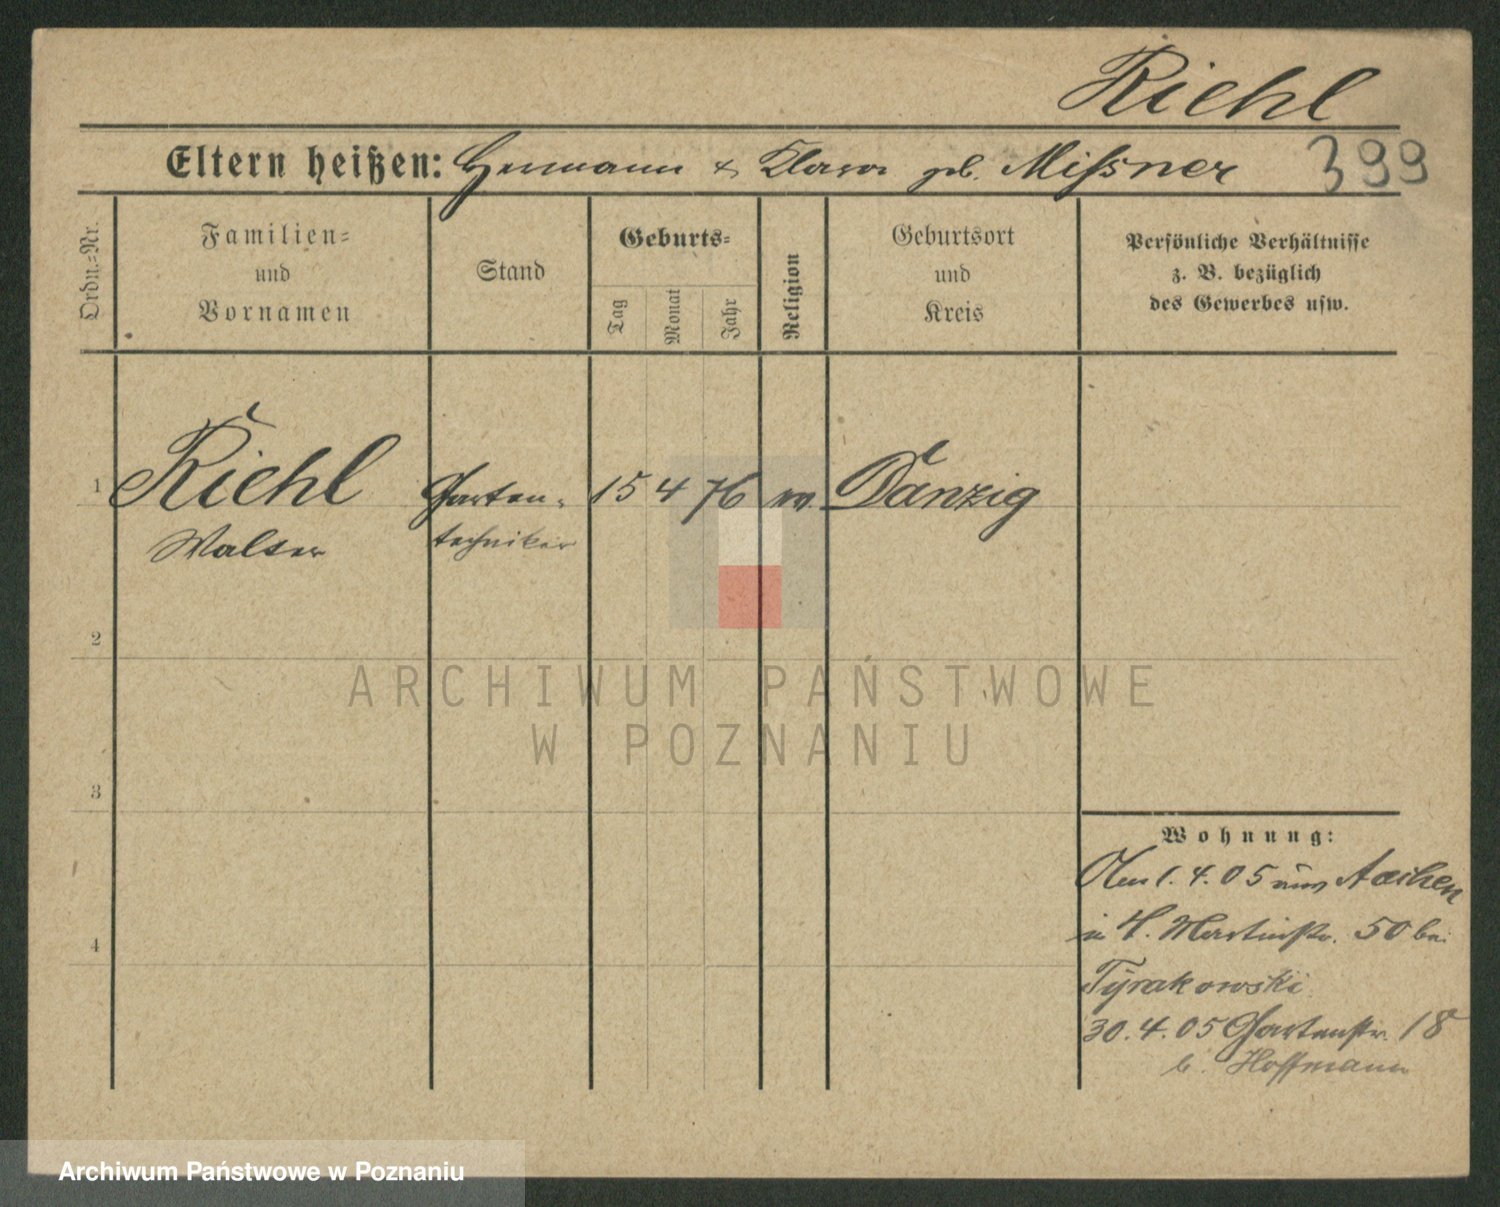 Riehl
Eltern heißen: Hermann & Klara geb. Missner
399
Ordn.-Nr.
Familien- und Vornamen
Stand
Geburts-
Tag
Monat
Jahr
Religion
Geburtsort und Kreis
Persönliche Verhältnisse
z. B. bezüglich
des Gewerbes usw.
1 Riehl Garten- 15 4 76 Danzig
Walter techniker
2
3
4
Wohnung:
1. 4. 05 aus Aachen
in H. Martinstr. 50 bei
Tyrakowski
30. 4. 05 Gartenstr. 18
b. Hoffmann
ARCHIWUM PAŃSTWOWE
W POZNANIU
Archiwum Państwowe w Poznaniu